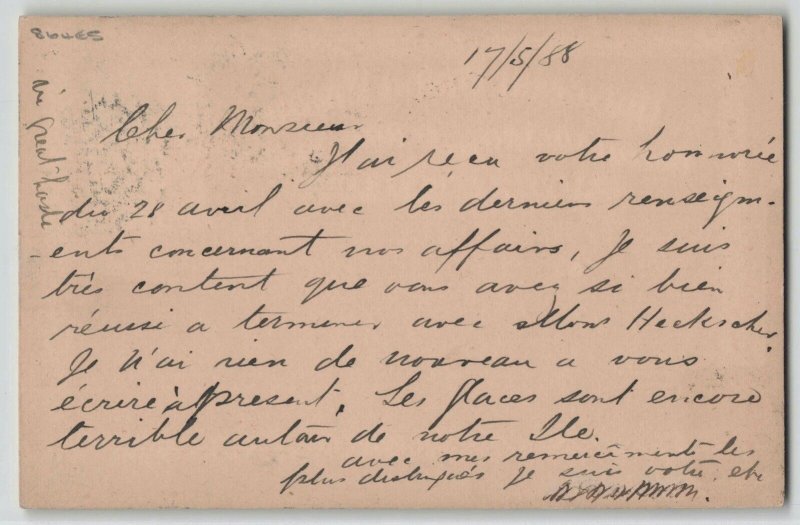 86465
17/5/88
in great haste
Cher Monsieur
J'ai reçu votre honnorée
du 28 avril avec les derniers renseigm-
-ents concernant nos affairs, Je suis
très content que vous avez si bien
réussi a terminer avec Mons Heckscher.
Je n'ai rien de nouveau a vous
écrire àpresent. Les glaces sont encore
terrible autour de notre Ile.
avec mes remerciments les
plus distingués je suis votre etc